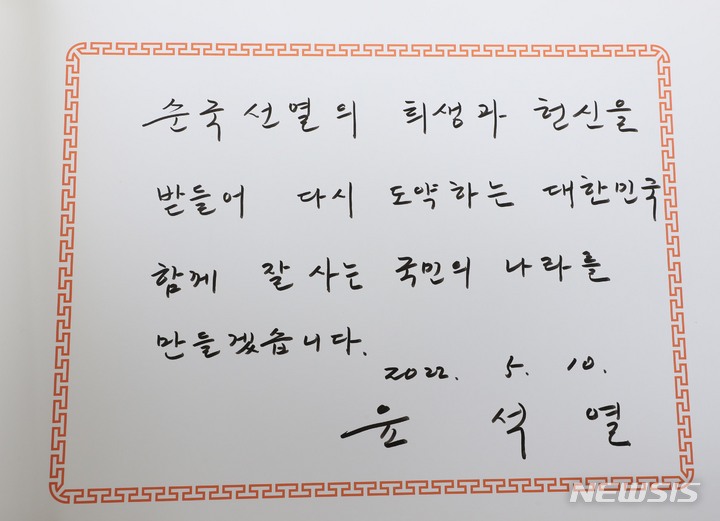 순국선열의 희생과 헌신을
받들어 다시 도약하는 대한민국
함께 잘 사는 국민의 나라를
만들겠습니다.
2022. 5. 10.
윤 석 열
NEWSIS